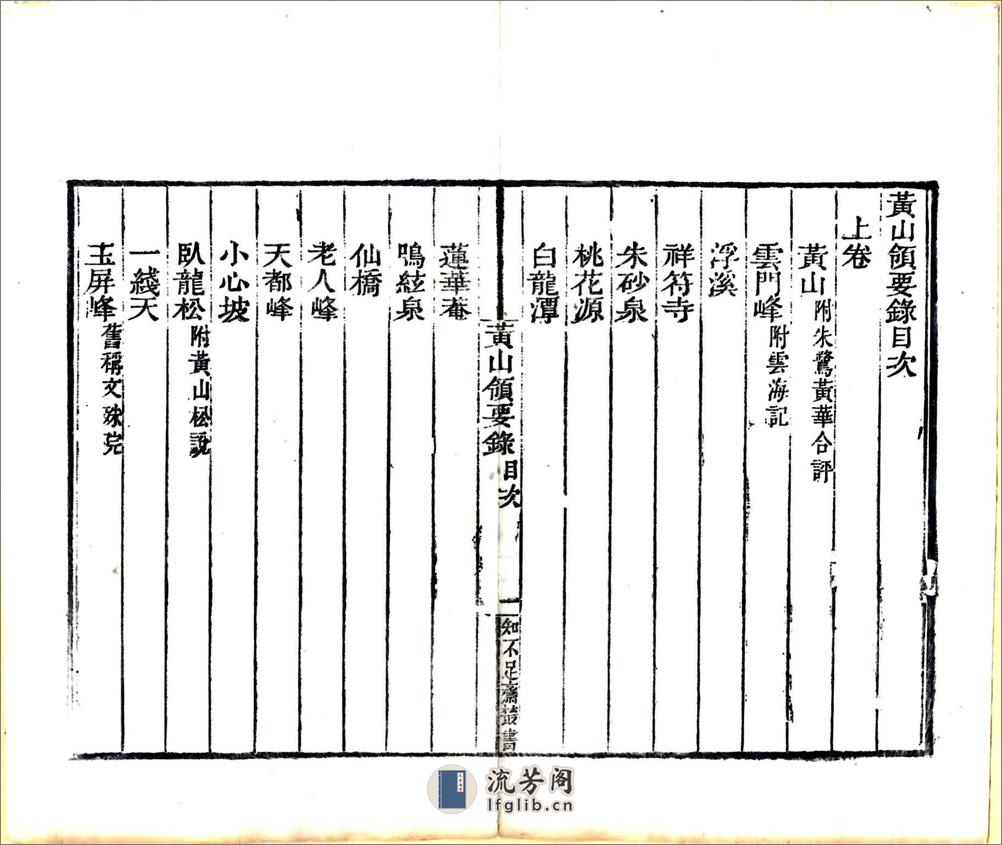 黃山領要錄目次
上卷
黃山附朱鷺黃華合評
雲門峰附雲海記
浮溪
祥符寺
朱砂泉
桃花源
白龍潭
黃山領要錄 目次 一 知不足齋叢書
蓮華菴
鳴絃泉
仙橋
老人峰
天都峰
小心坡
臥龍松附黃山松說
一綫天
玉屏峰舊稱文殊院
流芳阁
lfglib.cn